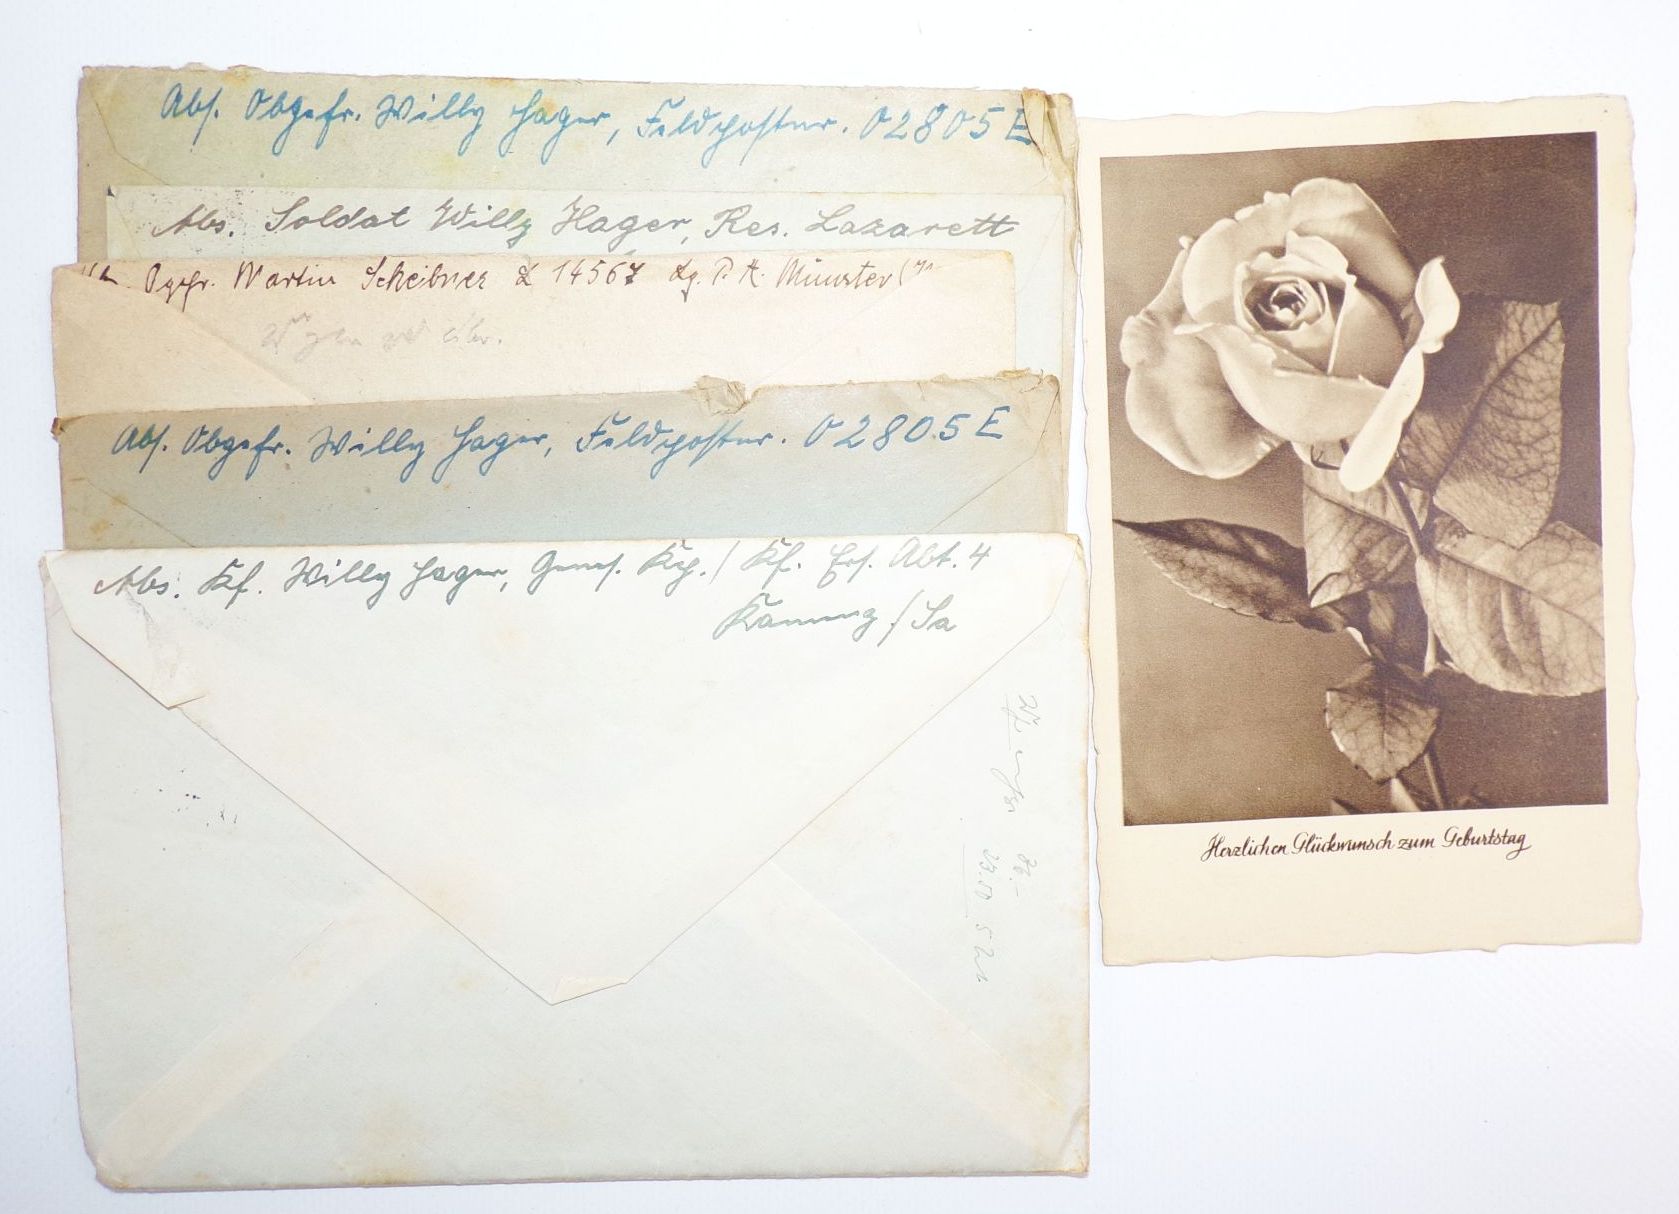 Abs. Obgefr. Willy Hager, Feldpostnr. 02805 E
Abs. Soldat Willy Hager, Res. Lazarett
Ogefr. Martin Scheibner L 14567 Lg. P. A. Münster (
Abs. Obgefr. Willy Hager, Feldpostnr. 02805 E
Abs. Kf. Willy Hager, Genes. Kp. / Kf. Ers. Abt. 4
Kamenz / Sa
Herzlichen Glückwunsch zum Geburtstag